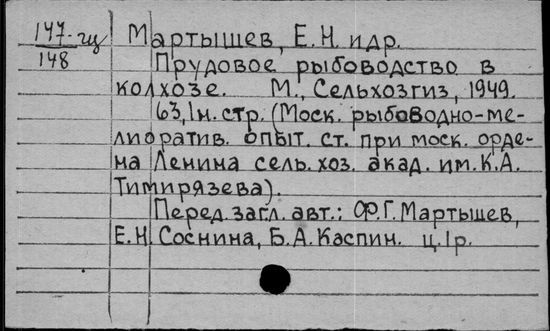 147-гц
148
Мартышев, Е.Н. и др.
Прудовое рыбоводство в
колхозе. М., Сельхозгиз, 1949.
63,1н. стр. (Моск. рыбоводно-ме-
лиоратив. опыт. ст. при моск. орде-
на Ленина сель. хоз. акад. им. К.А.
Тимирязева).
Перед. загл. авт.: Ф.Г. Мартышев,
Е.Н. Соснина, Б.А. Каспин. ц. 1р.